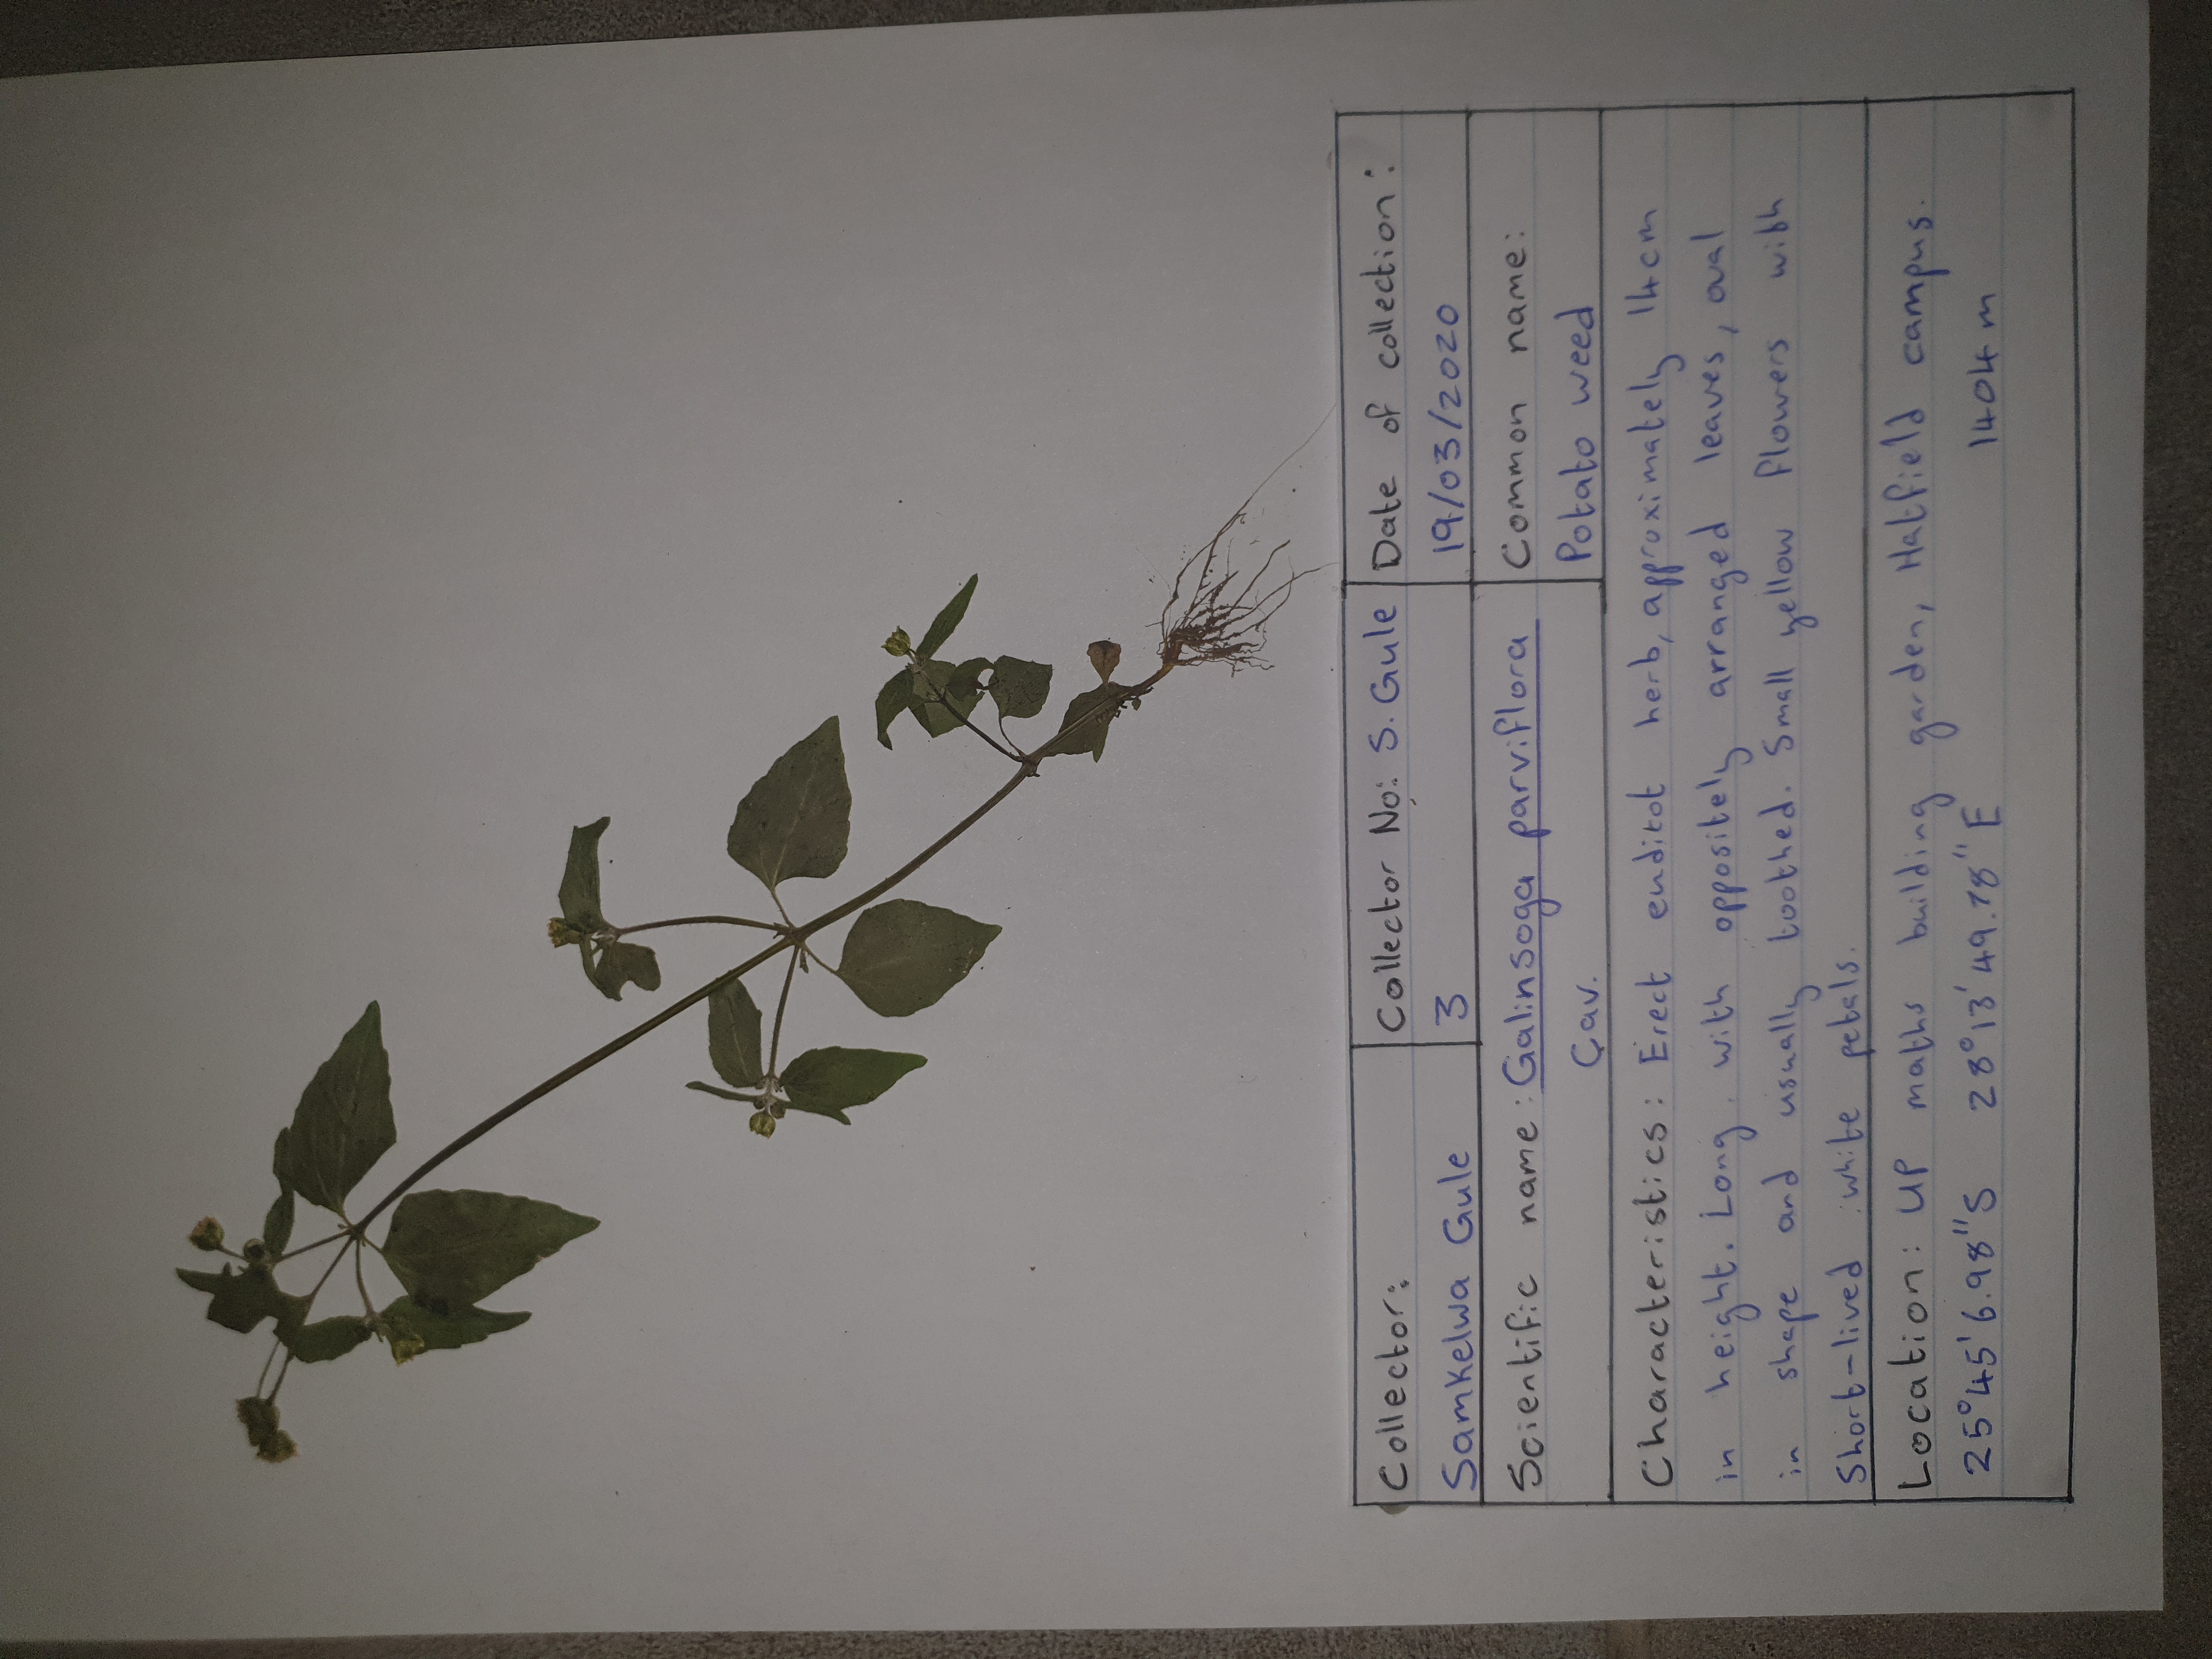 Collector:
Samkelwa Gule
Collector No: S. Gule
3
Date of collection:
19/03/2020
Scientific name: Galinsoga parviflora
Cav.
Common name:
Potato weed
Characteristics: Erect eudicot herb, approximately 14cm
in height. Long with oppositely arranged leaves, oval
in shape and usually toothed. Small yellow flowers with
Short-lived white petals.
Location: UP maths building garden, Hatfield campus.
25°45'6.98"S 28°13'49.78"E 1404m